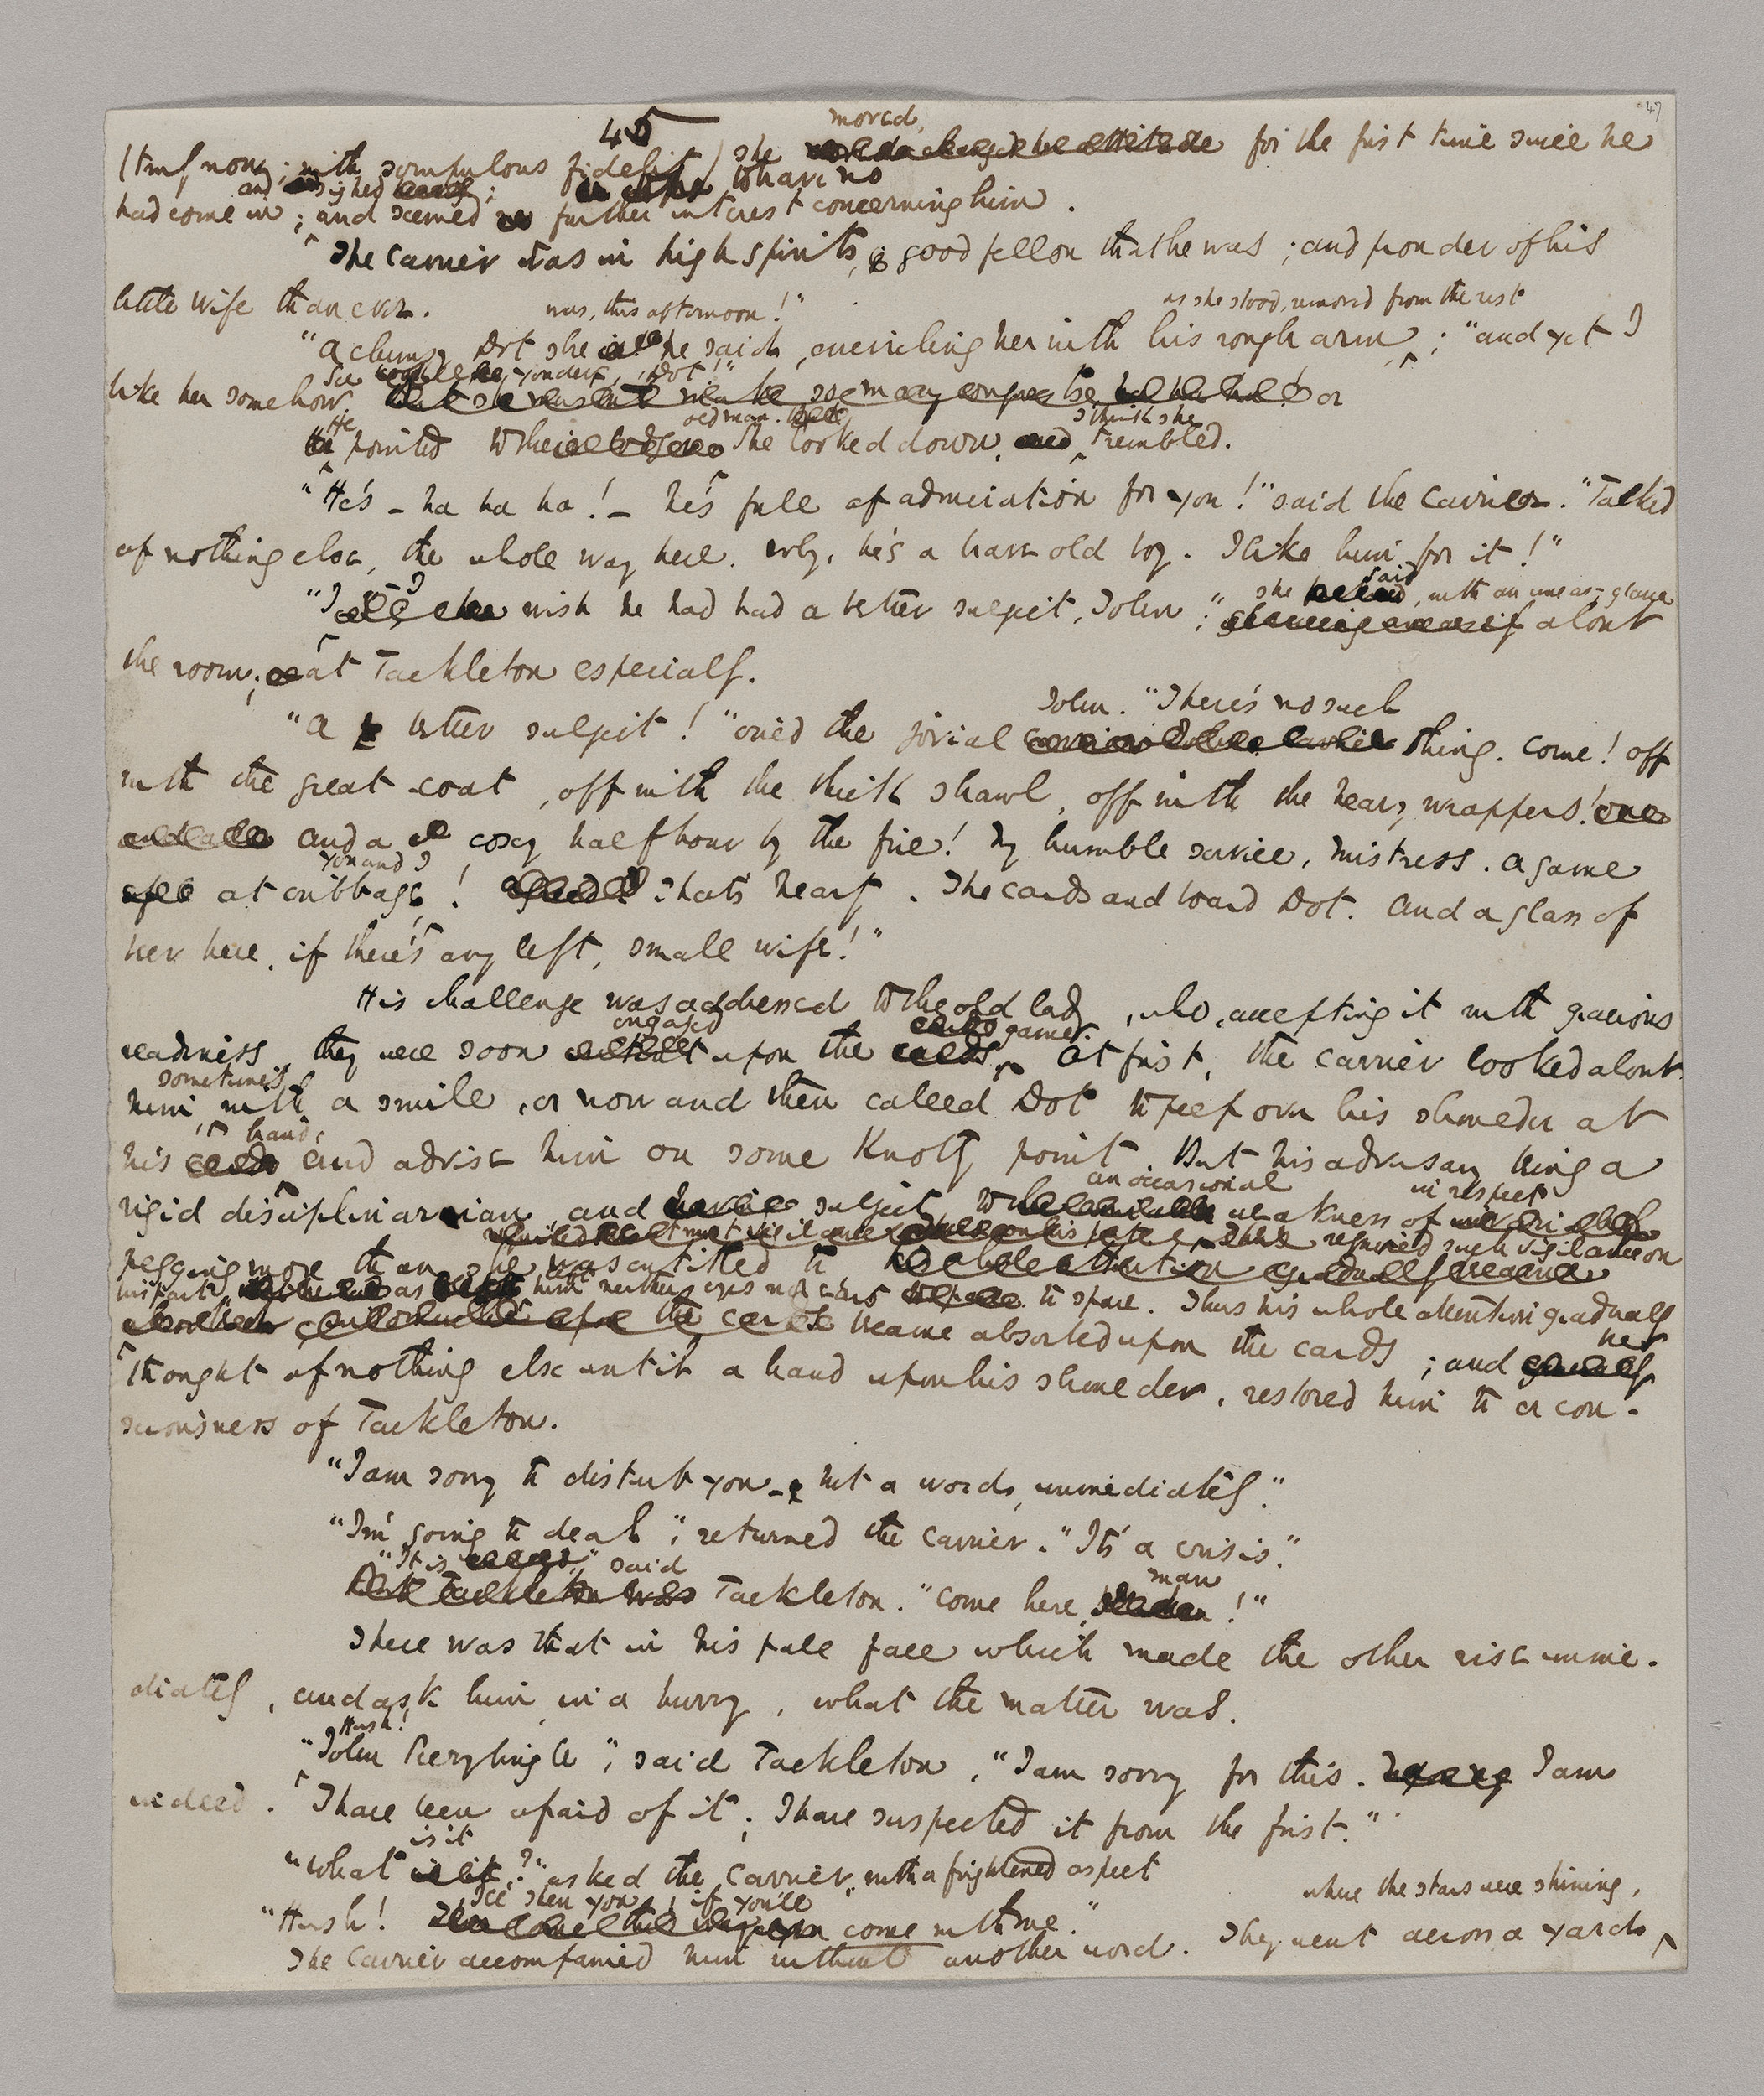 47
45
moved,
(truly now; with scrupulous fidelity) she for the first time since he
and sighed ; to have no
had come in; and seemed further interest concerning him.
The Carrier was in high spirits, good fellow that he was; and fonder of his
little wife than ever.
was, this afternoon!"
as she stood, removed from the rest
"A clumsy Dot she he said, encircling her with his rough arm, ; "and yet I
See yonder, Dot!"
like her somehow
He old man. I think she
pointed to the She looked down, trembled.
"He's – ha ha ha! – he's full of admiration for you!" said the Carrier. "Talked
of nothing else, the whole way here. Why, he's a brave old boy. I like him for it!"
she said, with an uneasy glance
"I wish he had had a better subject, John;" about
the room; at Tackleton especially.
John. "There's no such
"A better subject!" cried the jovial thing. Come! off
with the great-coat, off with the thick shawl, off with the heavy wrappers!
and a cosy half hour by the fire! My humble service, Mistress. A game
you and I
at cribbage! That's hearty. The cards and board Dot. And a glass of
beer here, if there's any left, small wife!"
His challenge was addressed to the old lady, who, accepting it with gracious
engaged game.
readiness, they were soon upon the At first, the Carrier looked about
sometimes
him, with a smile, or now and then called Dot to peep over his shoulder at
hand,
his and advise him on some knotty point. But his adversary being a
an occasional in respect
rigid disciplinarian, and subject to weakness of
required such vigilance on
pegging more than she was entitled to
his part, as him neither eyes nor ears to spare. Thus his whole attention gradually
became absorbed upon the cards; and he
thought of nothing else until a hand upon his shoulder, restored him to a con-
sciousness of Tackleton.
"I am sorry to disturb you – but a word, immediately."
"I'm going to deal", returned the Carrier. "It's a crisis."
"It is " said
Tackleton. "Come here, man!"
There was that in his pale face which made the other rise imme-
diately, and ask him in a hurry, what the matter was.
Hush!
"John Peerybingle", said Tackleton, "I am sorry for this. I am
indeed. I have been afraid of it; I have suspected it from the first."
is it
"What ?" asked the Carrier, with a frightened aspect
I'll shew you, if you'll where the stars were shining,
"Hush! come with me."
The Carrier accompanied him without another word. They went across a yard